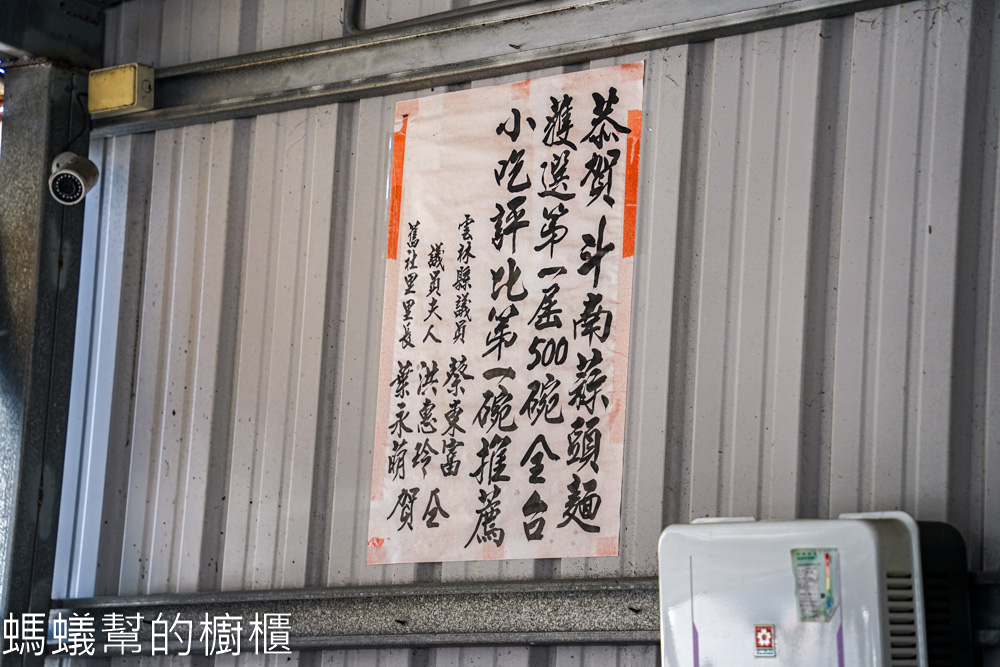 恭賀斗南蒜頭麵
獲選第一屆500碗全台
小吃評比第一碗推薦
雲林縣議員 蔡東富
議員夫人 洪惠玲 仝
舊社里里長 葉永萌 賀
螞蟻幫的櫥櫃